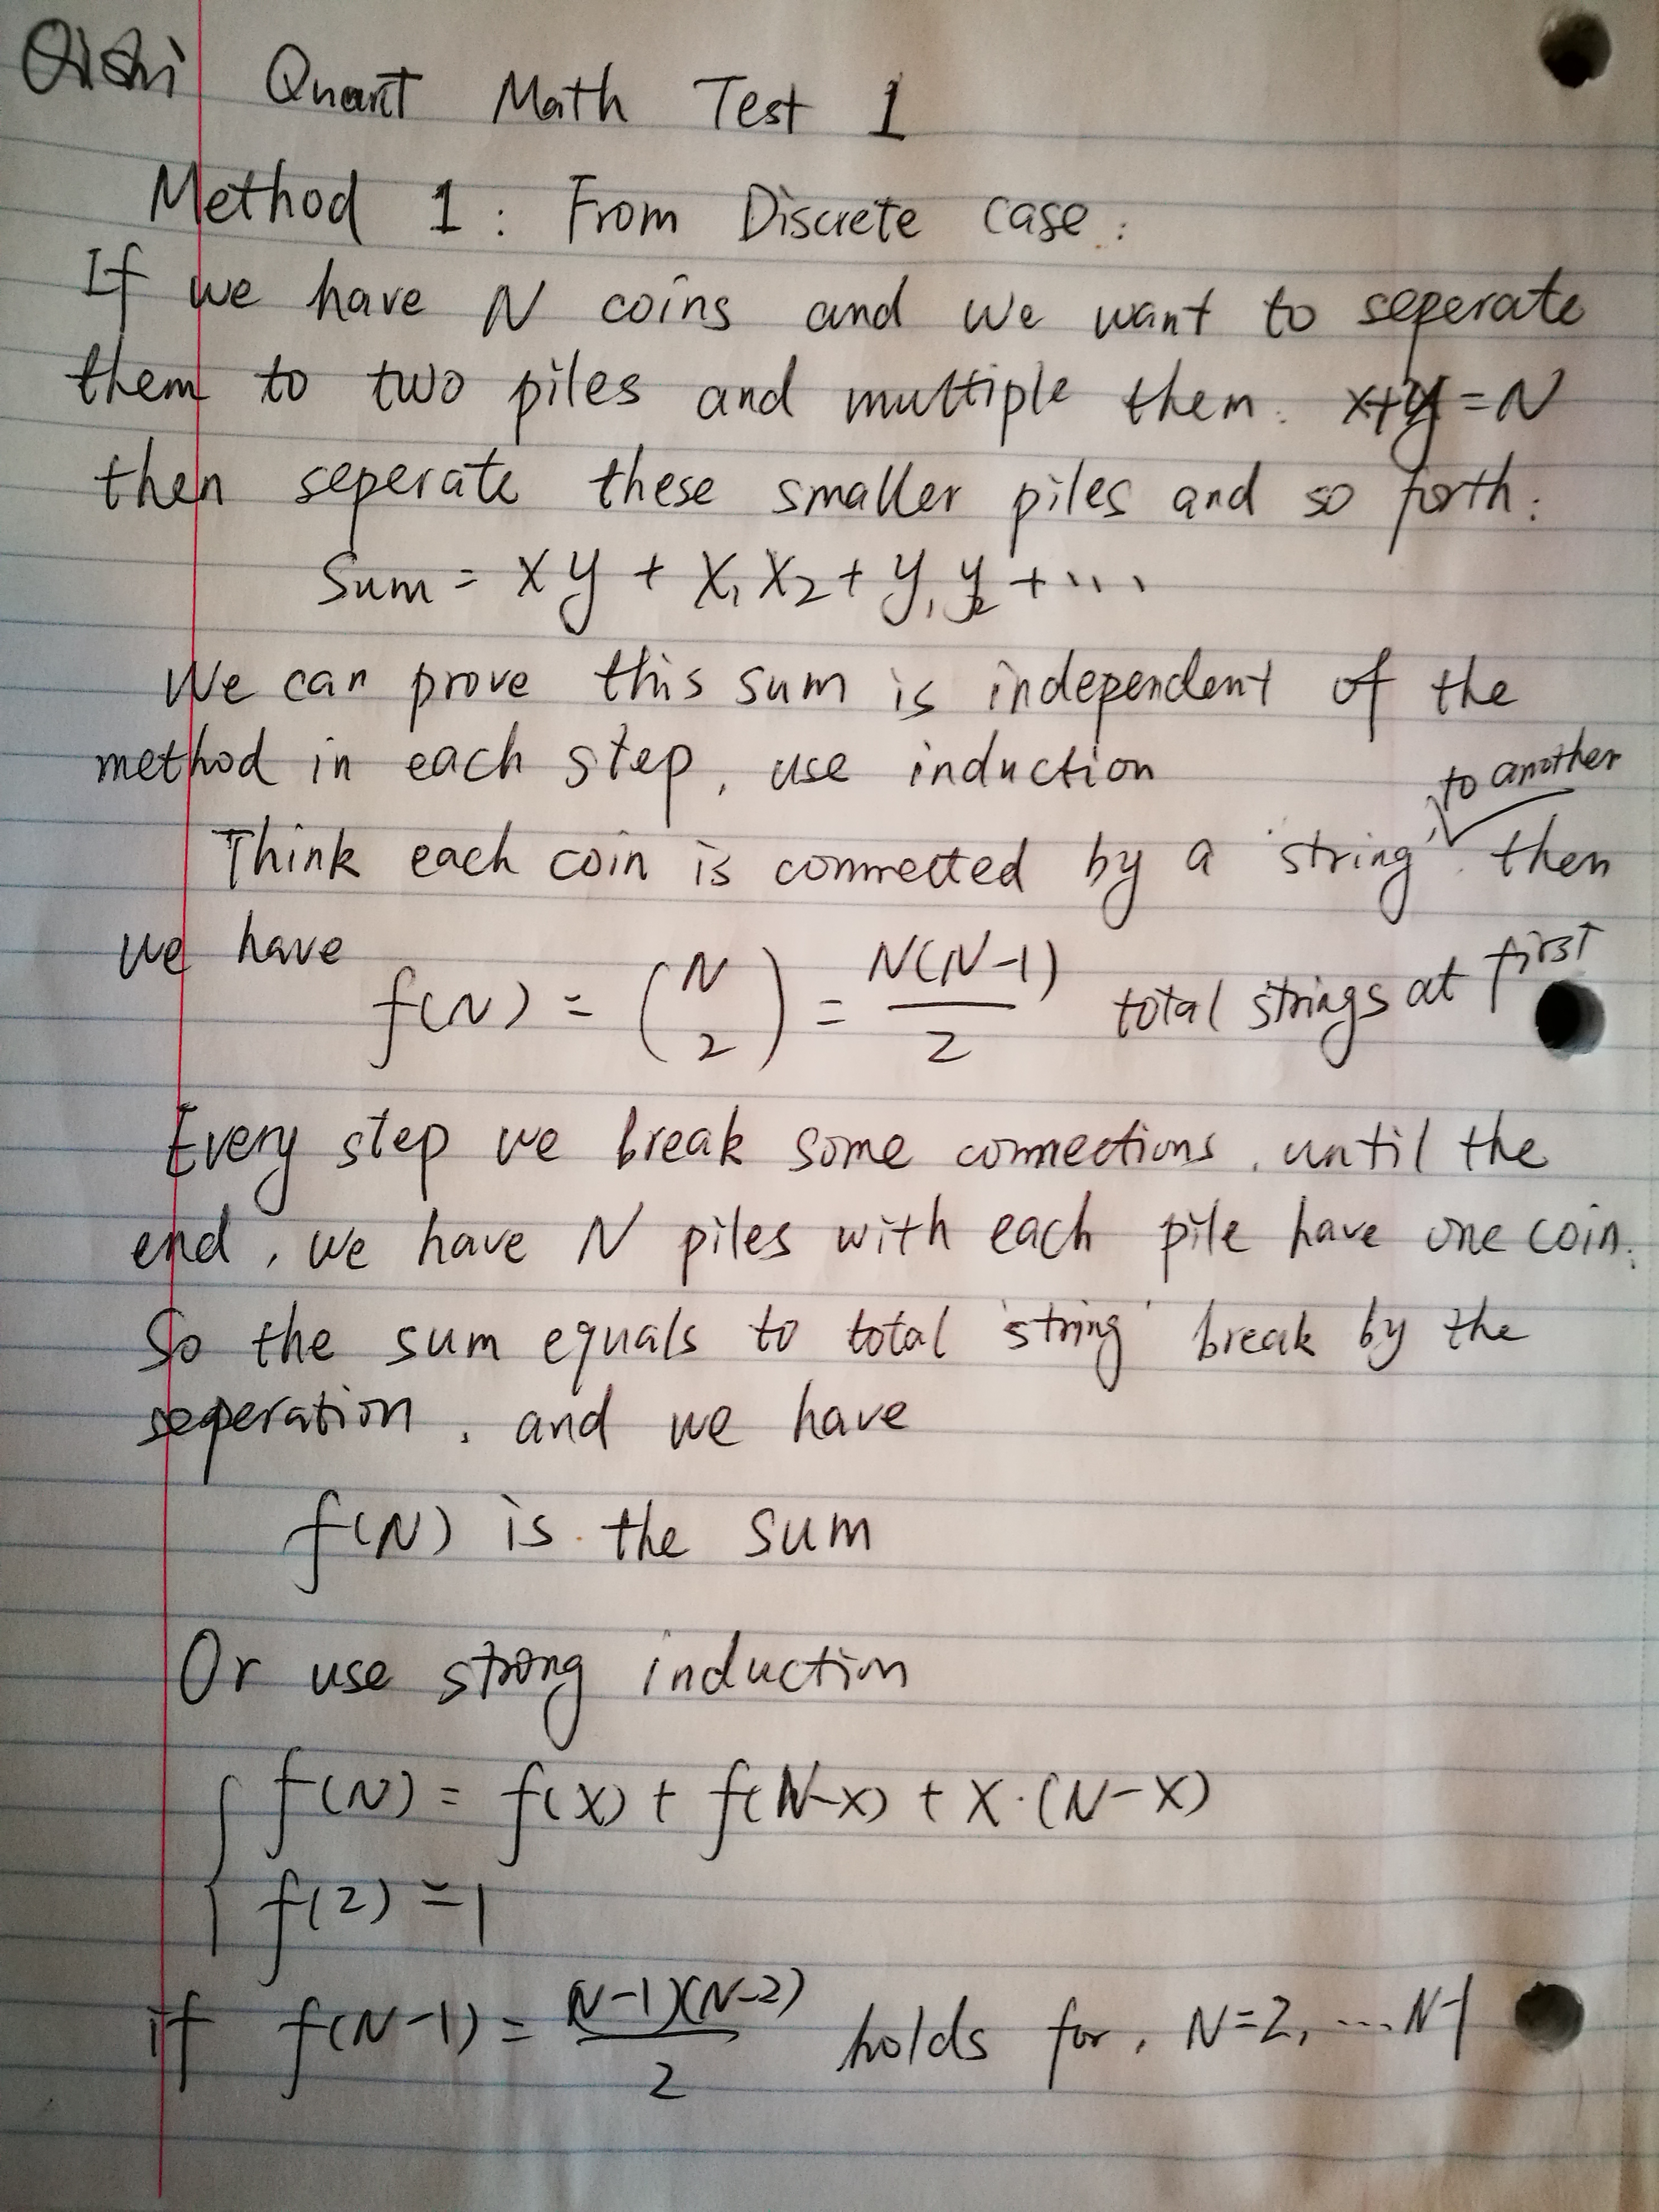 Qishi Quant Math Test 1
Method 1: From Discrete case:
If we have N coins and we want to seperate
them to two piles and multiple them. x+y=N
then seperate these smaller piles and so forth:
Sum = xy + x₁x₂ + y₁y₂ + ...
We can prove this sum is independent of the
method in each step, use induction
to another
Think each coin is connected by a string. then
we have f(N) = (N 2) = N(N-1)/2 total strings at first
Every step we break some connections, until the
end, we have N piles with each pile have one coin.
So the sum equals to total string break by the
seperation, and we have
f(N) is the sum
Or use strong induction
{ f(N) = f(x) + f(N-x) + x·(N-x)
f(2) = 1
if f(N-1) = (N-1)(N-2)/2 holds for, N=2,...N-1